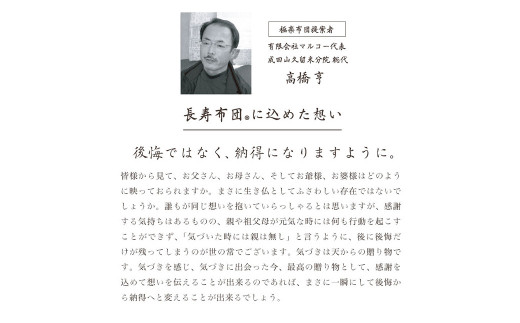 極楽布団提案者
有限会社マルコー代表
成田山久留米分院 総代
高橋 亨
長寿布団®に込めた想い
後悔ではなく、納得になりますように。
皆様から見て、お父さん、お母さん、そしてお爺様、お婆様はどのよう
に映っておられますか。まさに生き仏としてふさわしい存在ではないで
しょうか。誰もが同じ想いを抱いていらっしゃるとは思いますが、感謝
する気持ちはあるものの、親や祖父母が元気な時には何も行動を起こす
ことができず、「気づいた時には親は無し」と言うように、後に後悔だ
けが残ってしまうのが世の常でございます。気づきは天からの贈り物で
す。気づきを感じ、気づきに出会った今、最高の贈り物として、感謝を
込めて想いを伝えることが出来るのであれば、まさに一瞬にして後悔か
ら納得へと変えることが出来るでしょう。